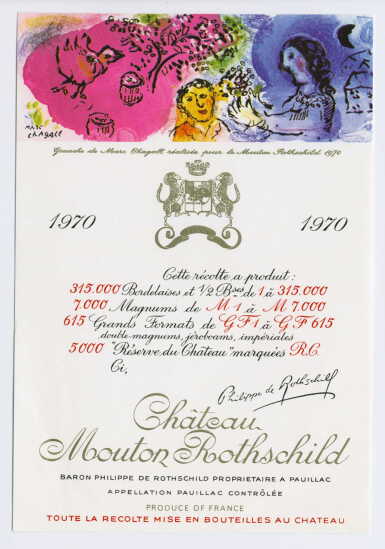 MARC
chagall
Gouache de Marc Chagall réalisée pour le Mouton Rothschild 1970
1970 1970
Cette récolte a produit :
315.000 Bordelaises et 1/2 Bses de 1 à 315.000
7.000 Magnums de M 1 à M 7.000
615 Grands Formats de G F 1 à G F 615
double-magnums, jéroboams, impériales
5000 "Réserve du Château" marquées R.C.
Ci,
Philippe de Rothschild
Château
Mouton Rothschild
BARON PHILIPPE DE ROTHSCHILD PROPRIETAIRE A PAUILLAC
APPELLATION PAUILLAC CONTRÔLÉE
PRODUCE OF FRANCE
TOUTE LA RECOLTE MISE EN BOUTEILLES AU CHATEAU